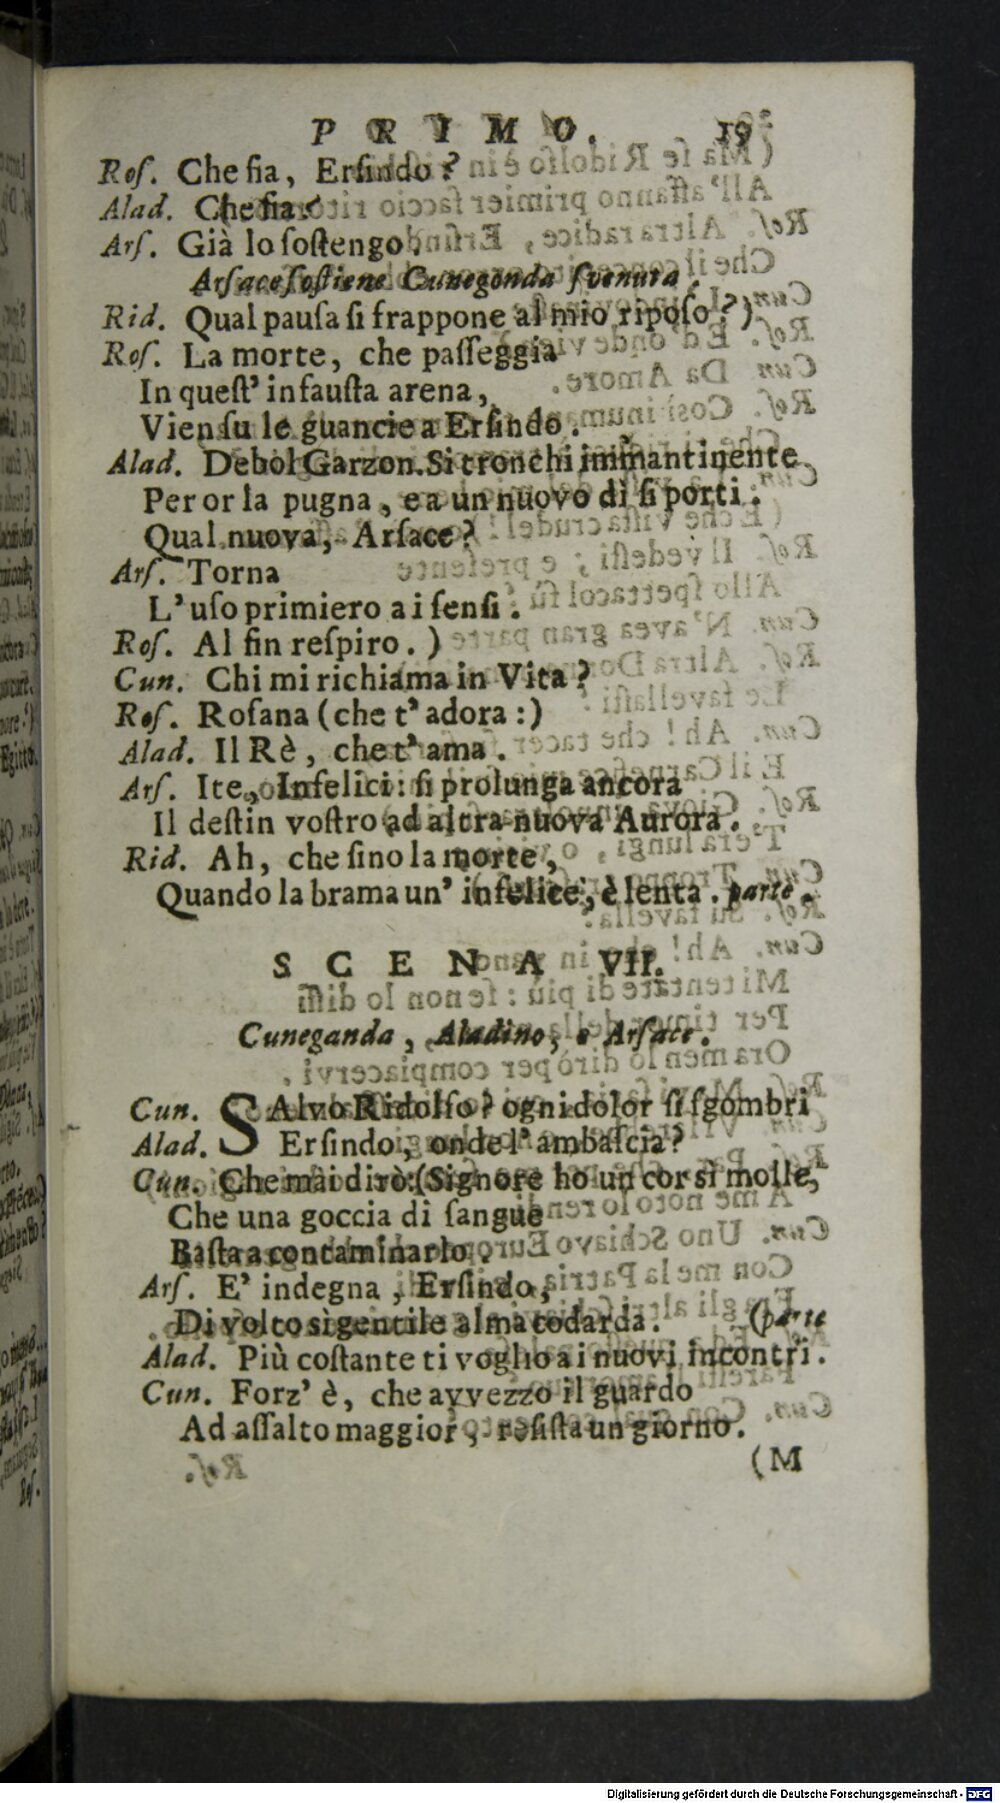 PRIMO. 19
Roſ. Che ſia, Erſindo?
Alad. Che ſia?
Arſ. Già lo ſoſtengo.
Arſace ſoſtiene Cunegonda ſvenuta.
Rid. Qual pauſa ſi frappone al mio ripoſo?)
Roſ. La morte, che paſſeggia
In queſt' infauſta arena,
Vien ſu le guancie a Erſindo.
Alad. Debol Garzon. Si tronchi immantinente
Per or la pugna, e a un nuovo dì ſi porti:
Qual nuova, Arſace?
Arſ. Torna
L' uſo primiero a i ſenſi.
Roſ. Al fin reſpiro.)
Cun. Chi mi richiama in Vita?
Roſ. Roſana (che t' adora:)
Alad. Il Rè, che t' ama.
Arſ. Ite, Infelici: ſi prolunga ancora
Il deſtin voſtro ad altra nuova Aurora.
Rid. Ah, che ſino la morte,
Quando la brama un' infelice, è lenta. parte.
SCENA VII.
Cuneganda, Aladino, e Arſace.
Cun. SAlvo Ridolfo? ogni dolor ſi ſgombri
Alad. Erſindo, onde l' ambaſcia?
Cun. Che mai dirò: (Signore ho un cor sì molle,
Che una goccia di ſangue
Baſta a contaminarlo.
Arſ. E' indegna, Erſindo,
Di volto sì gentile alma codarda. (parte
Alad. Più coſtante ti voglio a i nuovi incontri.
Cun. Forz' è, che avvezzo il guardo
Ad aſſalto maggior, reſiſta un giorno.
(M
Digitalisierung gefördert durch die Deutsche Forschungsgemeinschaft - DFG